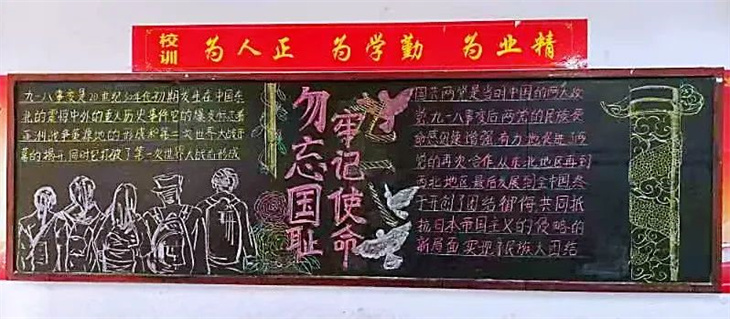 校训
为人正 为学勤 为业精
九一八事变是20世纪30年代初期发生在中国东
北的震惊中外的重大历史事件它的爆发标志着
亚洲战争策源地的形成和第二次世界大战序
幕的揭开同时它打破了第一次世界大战后形成
勿忘国耻
牢记使命
国共两党是当时中国的两大政
党九一八事变后两党的民族使
命感迅速增强有力地促进了两
党的再次合作从东北地区再到
西北地区最后发展到全中国终
于开创了团结御侮共同抵
抗日本帝国主义的侵略的
新局面实现了民族大团结